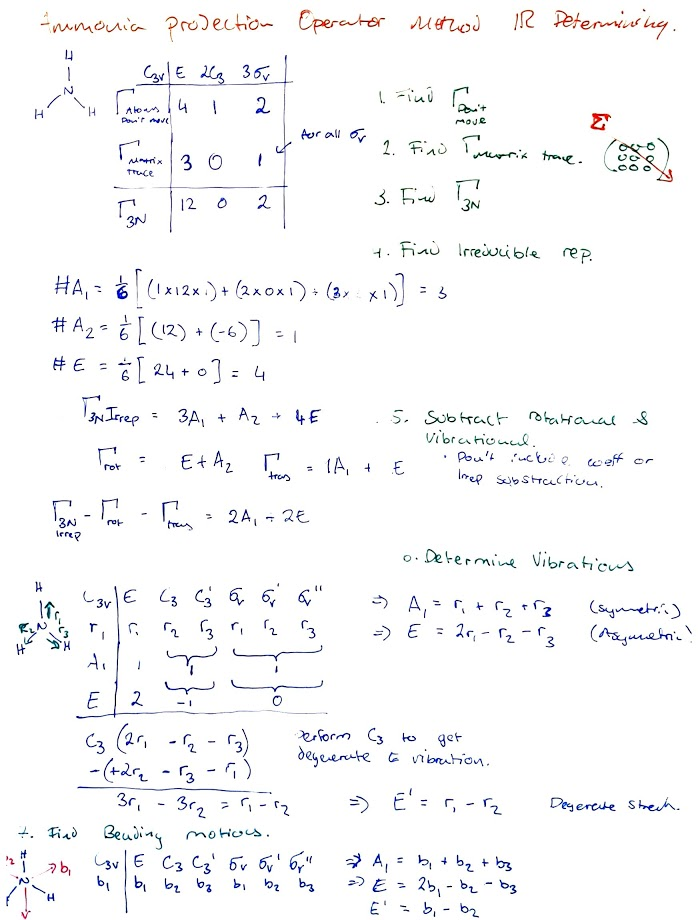 Ammonia projection Operator Method IR Determining.
H
N
H H
C3v E 2C3 3σv
Γ Atoms Don't move 4 1 2
for all σv
Γ Matrix trace 3 0 1
Γ3N 12 0 2
1. Find Γ Don't move
2. Find Γ matrix trace.
Σ
3. Find Γ3N
4. Find Irreducible rep.
#A1 = 1/6 [(1x12x1) + (2x0x1) + (3x x1)] = 3
#A2 = 1/6 [(12) + (-6)] = 1
#E = 1/6 [24 + 0] = 4
Γ3N Irrep = 3A1 + A2 + 4E
Γrot = E + A2 Γtrans = 1A1 + E
5. Subtract rotational & vibrational.
· Don't include coeff or Irrep substraction.
Γ3N Irrep - Γrot - Γtrans = 2A1 + 2E
6. Determine Vibrations
H
N
H H
r1
r2
r3
C3v E C3 C3' σv σv' σv''
r1 r1 r2 r3 r1 r2 r3
A1 1 1 1
E 2 -1 0
=> A1 = r1 + r2 + r3 (symmetric)
=> E = 2r1 - r2 - r3 (Asymmetric)
C3 (2r1 - r2 - r3)
-(+2r2 - r3 - r1)
3r1 - 3r2 = r1 - r2
Perform C3 to get
degenerate E vibration.
=> E' = r1 - r2 Degenerate strech.
7. Find Bending motions.
H
N
H
b1
C3v E C3 C3' σv σv' σv''
b1 b1 b2 b3 b1 b2 b3
=> A1 = b1 + b2 + b3
=> E = 2b1 - b2 - b3
E' = b1 - b2